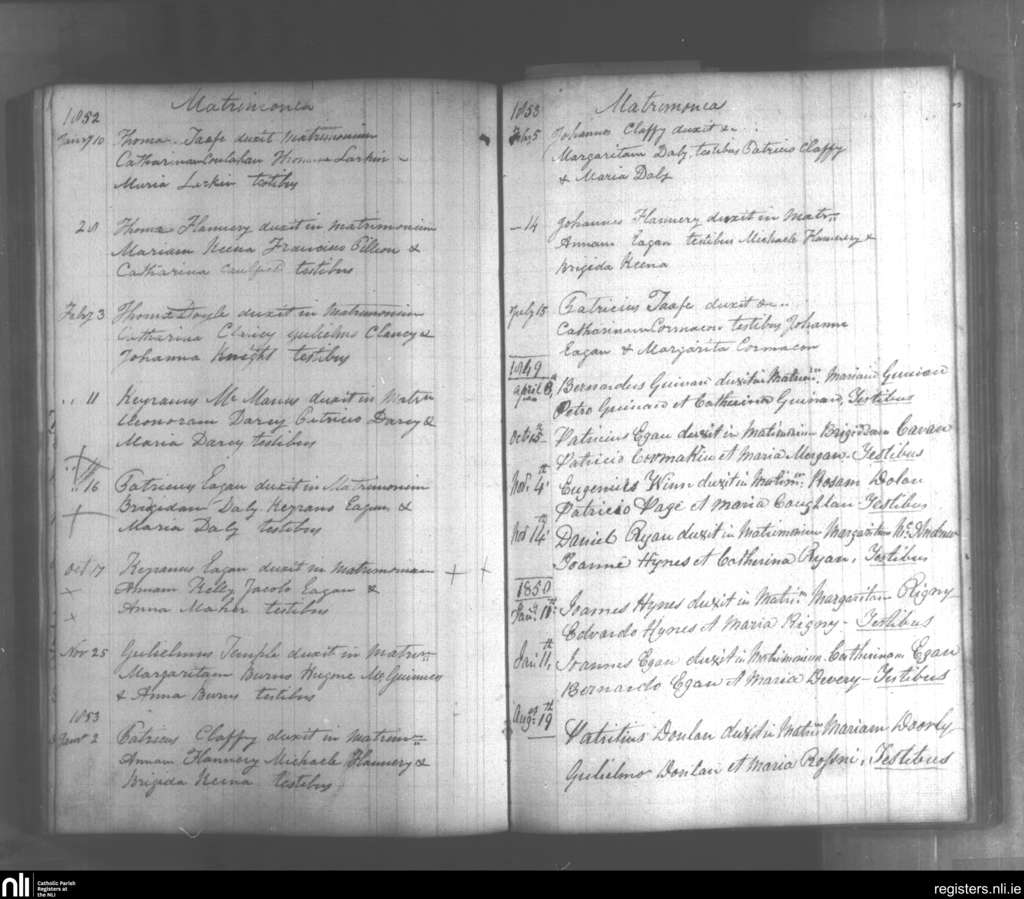 Matrimonea
1852
Janry 10 Thoma Taafe duxit Matrimonium
Catharinam Coulahan Thomas Larkin
Maria Larkin testibus
28 Thoma Flannery duxit in matrimonium
Mariam Keena Francius &
Catharina Caulfield testibus
Feby 3 Thoma Doyle duxit in Matrimonium
Catharina Clancy Gulielmo Clancy &
Johanna Knight testibus
.. 11 Keyranus Mc Manus duxit in Matrm
Eleonoram Darcy Patricio Darcy &
Maria Darcy testibus
.. 16 Patricius Eagan duxit in Matrimonium
Brigidam Daly Keyrans Eagan &
Maria Daly testibus
Oct 17 Keyranus Eagan duxit in matrimonium
Annam Kelly Jacobo Eagan &
Anna Maher testibus
Nov 25 Gulielmus Temple duxit in Matrm
Margaritam Burns Hugone McGuinness
& Anna Burns testibus
1853
Janr 2 Patricus Claffy duxit in matrim
Annam Flannery Michaele Flannery &
Brigida Keena testibus
1853 Matrimonea
Feby 5 Johannes Claffy duxit &c ..
Margaritam Daly, testibus Patricus Claffy
& Maria Daly
— 14 Johannes Flannery duxit in Matr
Annam Eagan testibus Michaele Flannery &
Brigida Keena
July 15 Patricius Taafe duxit &c ..
Catharinam Cormacon testibus Johanne
Eagan & Margarita Cormacon
1849
April 8, Bernardus Guinan duxit in Matrim: Mariam Guinan
Petro Guinan et Catherina Guinan, Testibus
Octr 15th Patricius Egan duxit in Matimonium Brigidam Cavan
Patricio Cormakin et Maria Morgan. Testibus
Nov. 4th Eugenius Winn duxit in Matim: Rosam Dolan
Patricio Page et Maria Coughlan Testibus
Nov 14th Daniel Ryan duxit in Matrimonium Margaritam
Joanne Hynes et Catherina Ryan, Testibus
1850
Jany 18: Joannes Hynes duxit in Matrim Margaritam Rigny
Edvardo Hynes et Maria Rigny - Testibus
Jan 11th, Joannes Egan duxit in Matrimonium Catherinam Egan
Bernardo Egan et Maria Devery - Testibus
Augt 19th Patritius Donlan duxit in Matrim Mariam Doorly
Gulielmo Donlan et Maria Testibus
nli Catholic Parish
Registers at
the NLI
registers.nli.ie